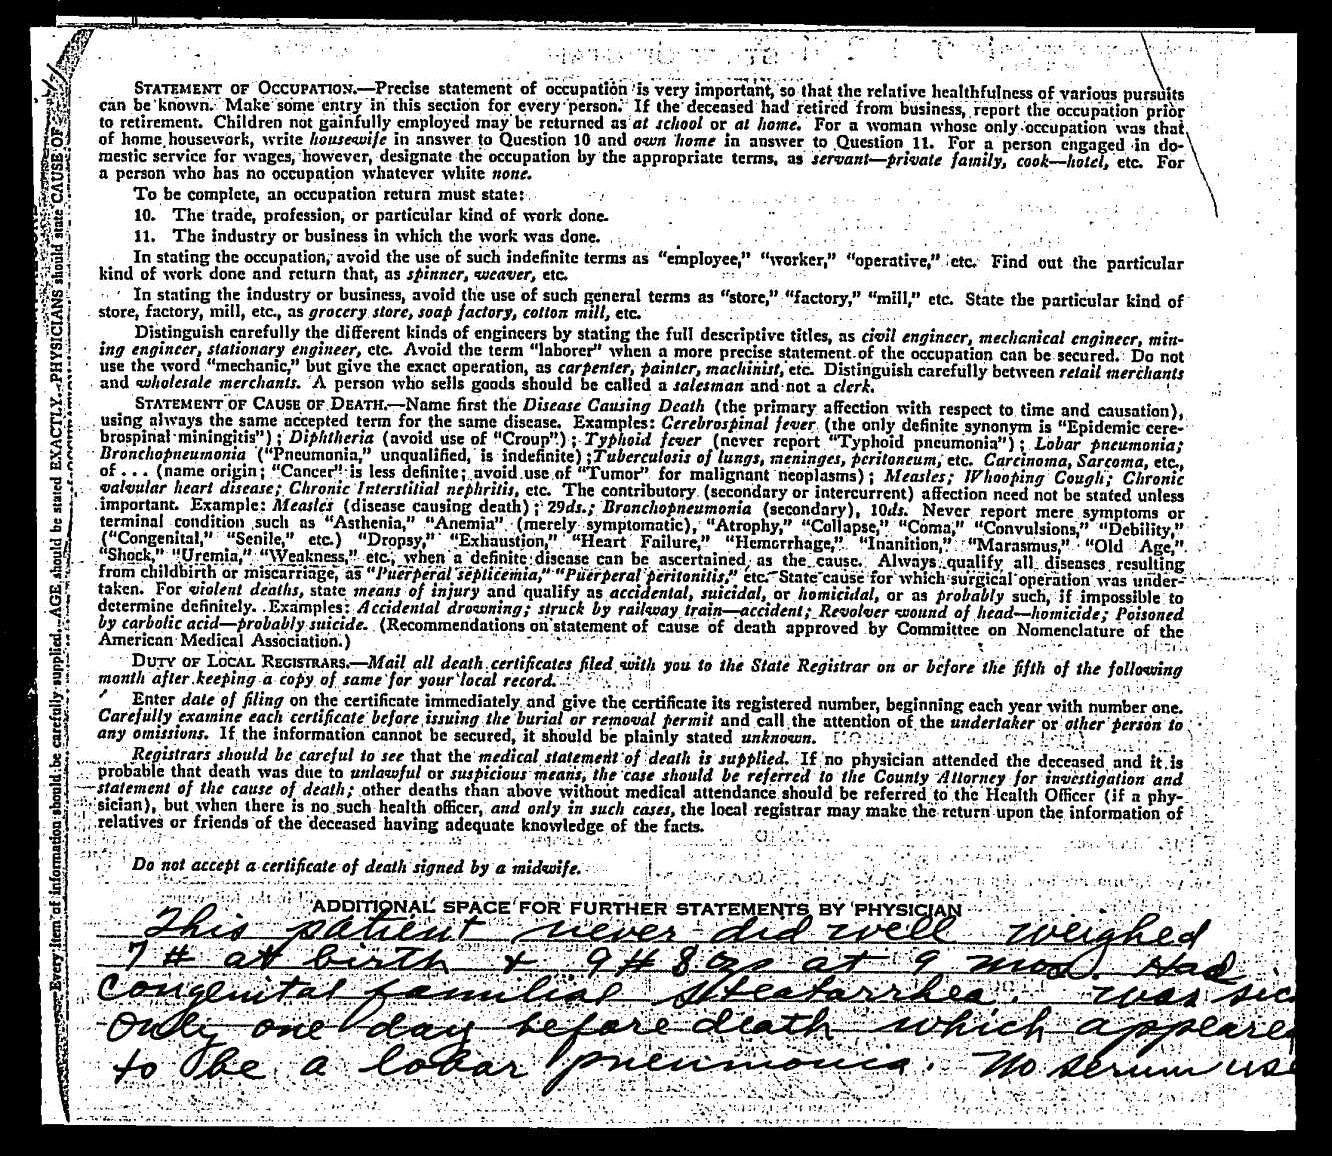 STATEMENT OF OCCUPATION.—Precise statement of occupation is very important, so that the relative healthfulness of various pursuits
can be known. Make some entry in this section for every person. If the deceased had retired from business, report the occupation prior
to retirement. Children not gainfully employed may be returned as at school or at home. For a woman whose only occupation was that
of home housework, write housewife in answer to Question 10 and own home in answer to Question 11. For a person engaged in do-
mestic service for wages, however, designate the occupation by the appropriate terms, as servant—private family, cook—hotel, etc. For
a person who has no occupation whatever white none.
To be complete, an occupation return must state:
10. The trade, profession, or particular kind of work done.
11. The industry or business in which the work was done.
In stating the occupation, avoid the use of such indefinite terms as "employee," "worker," "operative," etc. Find out the particular
kind of work done and return that, as spinner, weaver, etc.
In stating the industry or business, avoid the use of such general terms as "store," "factory," "mill," etc. State the particular kind of
store, factory, mill, etc., as grocery store, soap factory, cotton mill, etc.
Distinguish carefully the different kinds of engineers by stating the full descriptive titles, as civil engineer, mechanical engineer, min-
ing engineer, stationary engineer, etc. Avoid the term "laborer" when a more precise statement of the occupation can be secured. Do not
use the word "mechanic," but give the exact operation, as carpenter, painter, machinist, etc. Distinguish carefully between retail merchants
and wholesale merchants. A person who sells goods should be called a salesman and not a clerk.
STATEMENT OF CAUSE OF DEATH.—Name first the Disease Causing Death (the primary affection with respect to time and causation),
using always the same accepted term for the same disease. Examples: Cerebrospinal fever (the only definite synonym is "Epidemic cere-
brospinal miningitis"); Diphtheria (avoid use of "Croup"); Typhoid fever (never report "Typhoid pneumonia"); Lobar pneumonia;
Bronchopneumonia ("Pneumonia," unqualified, is indefinite); Tuberculosis of lungs, meninges, peritoneum, etc. Carcinoma, Sarcoma, etc.,
of ... (name origin; "Cancer" is less definite; avoid use of "Tumor" for malignant neoplasms); Measles; Whooping Cough; Chronic
valvular heart disease; Chronic Interstitial nephritis, etc. The contributory (secondary or intercurrent) affection need not be stated unless
important. Example: Measles (disease causing death); 29ds.; Bronchopneumonia (secondary), 10ds. Never report mere symptoms or
terminal condition such as "Asthenia," "Anemia" (merely symptomatic), "Atrophy," "Collapse," "Coma," "Convulsions," "Debility,"
("Congenital," "Senile," etc.) "Dropsy," "Exhaustion," "Heart Failure," "Hemorrhage," "Inanition," "Marasmus," "Old Age,"
"Shock," "Uremia," "Weakness," etc., when a definite disease can be ascertained as the cause. Always qualify all diseases resulting
from childbirth or miscarriage, as "Puerperal septicemia," "Puerperal peritonitis," etc. State cause for which surgical operation was under-
taken. For violent deaths, state means of injury and qualify as accidental, suicidal, or homicidal, or as probably such, if impossible to
determine definitely. Examples: Accidental drowning; struck by railway train—accident; Revolver wound of head—homicide; Poisoned
by carbolic acid—probably suicide. (Recommendations on statement of cause of death approved by Committee on Nomenclature of the
American Medical Association.)
DUTY OF LOCAL REGISTRARS.—Mail all death certificates filed with you to the State Registrar on or before the fifth of the following
month after keeping a copy of same for your local record.
Enter date of filing on the certificate immediately and give the certificate its registered number, beginning each year with number one.
Carefully examine each certificate before issuing the burial or removal permit and call the attention of the undertaker or other person to
any omissions. If the information cannot be secured, it should be plainly stated unknown.
Registrars should be careful to see that the medical statement of death is supplied. If no physician attended the deceased and it is
probable that death was due to unlawful or suspicious means, the case should be referred to the County Attorney for investigation and
statement of the cause of death; other deaths than above without medical attendance should be referred to the Health Officer (if a phy-
sician), but when there is no such health officer, and only in such cases, the local registrar may make the return upon the information of
relatives or friends of the deceased having adequate knowledge of the facts.
Do not accept a certificate of death signed by a midwife.
ADDITIONAL SPACE FOR FURTHER STATEMENTS BY PHYSICIAN
This patient never did well weighed
7 # at birth & 9 # 8 ozs at 9 mos. Had
Congenital familial Steatarrhea. was sic
only one day before death which appeare
to be a lobar pneumonia. No serum us
Every item of information should be carefully supplied. AGE should be stated EXACTLY. PHYSICIANS should state CAUSE OF